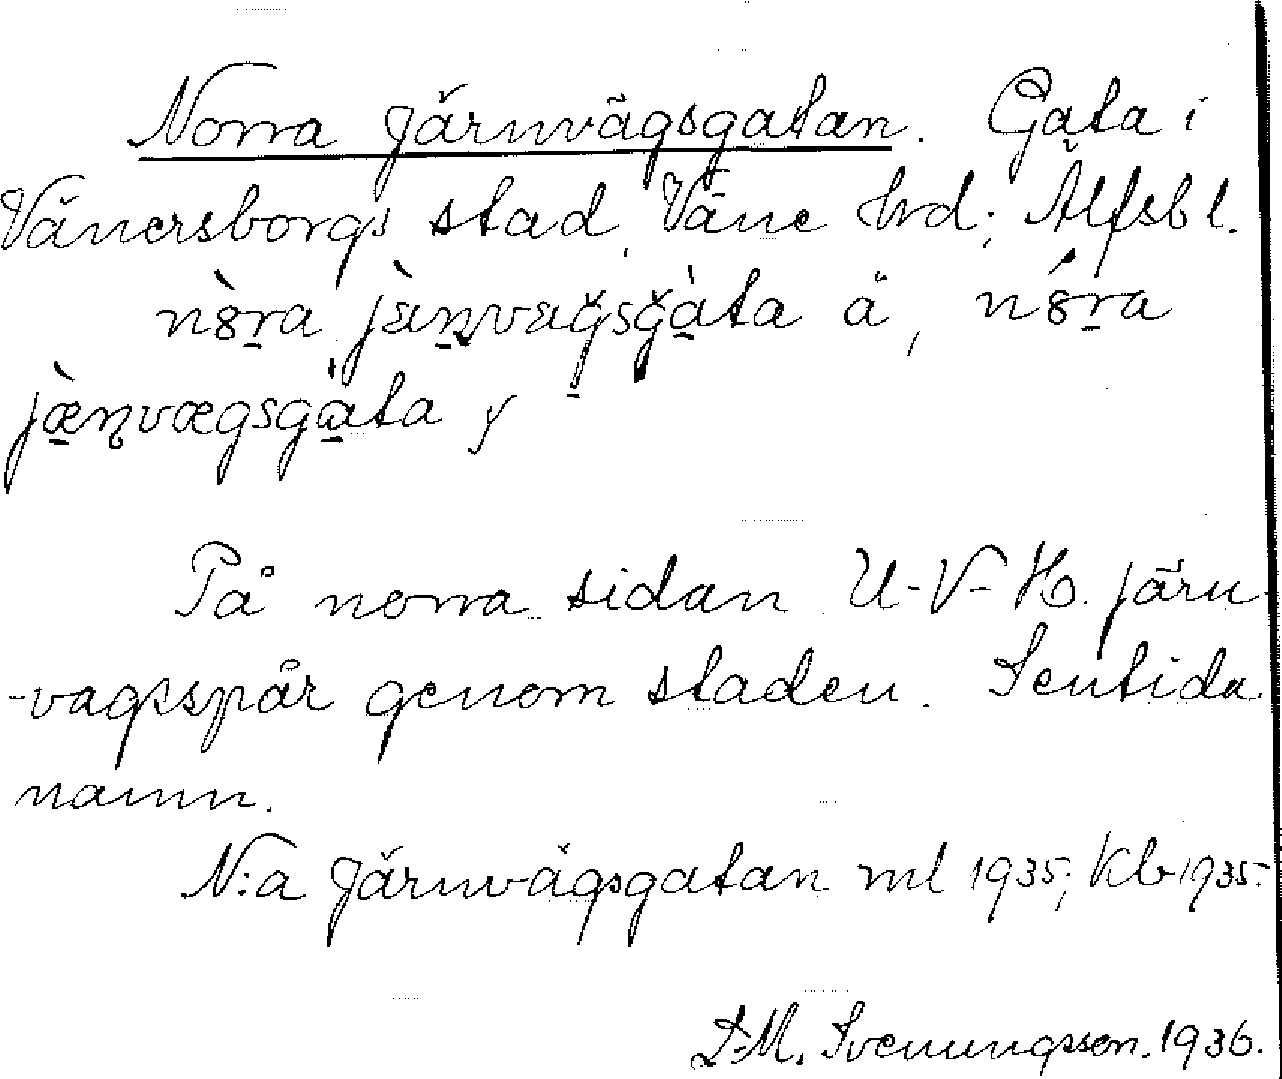 Norra Järnvägsgatan. Gata i
Vänersborgs stad, Väne hrd; Älfsbl.
nòra jæ̀ṇvægsgàta ä, nóra
jæ̀ṇvægsgàta y
På norra sidan U-V-H. järn-
-vagsspår genom staden. Sentida
namn.
N:a Järnvägsgatan ml 1935; Klb 1935.
D-M. Svenungsson. 1936.